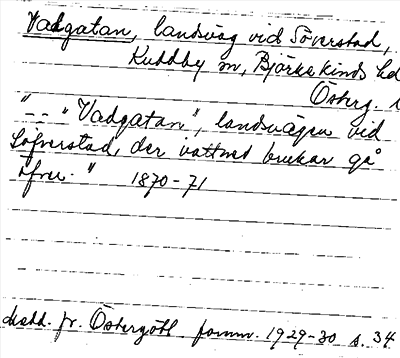 Vadgatan, landsväg vid Söverstad,
Kuddby sn, Björkekinds hd
Österg. l
"-- "Vadgatan", landsvägen vid
Löfverstad, der vattnet brukar gå
öfver." 1870-71
Medd. fr. Östergötl fornm. 1929-30 s. 34